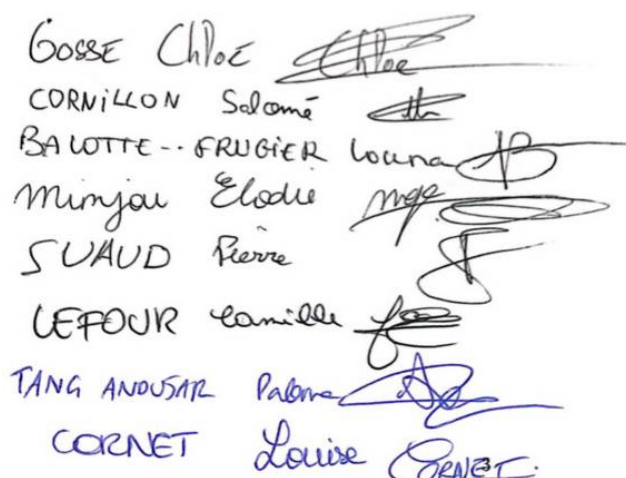 GOSSE Chloé Chloe
CORNILLON Salomé
BALOTTE--FRUGIER Louna
Minjou Elodie
SUAUD Pierre
LEFOUR Camille
TANG ANOUSAR Paloma
CORNET Louise CORNET.